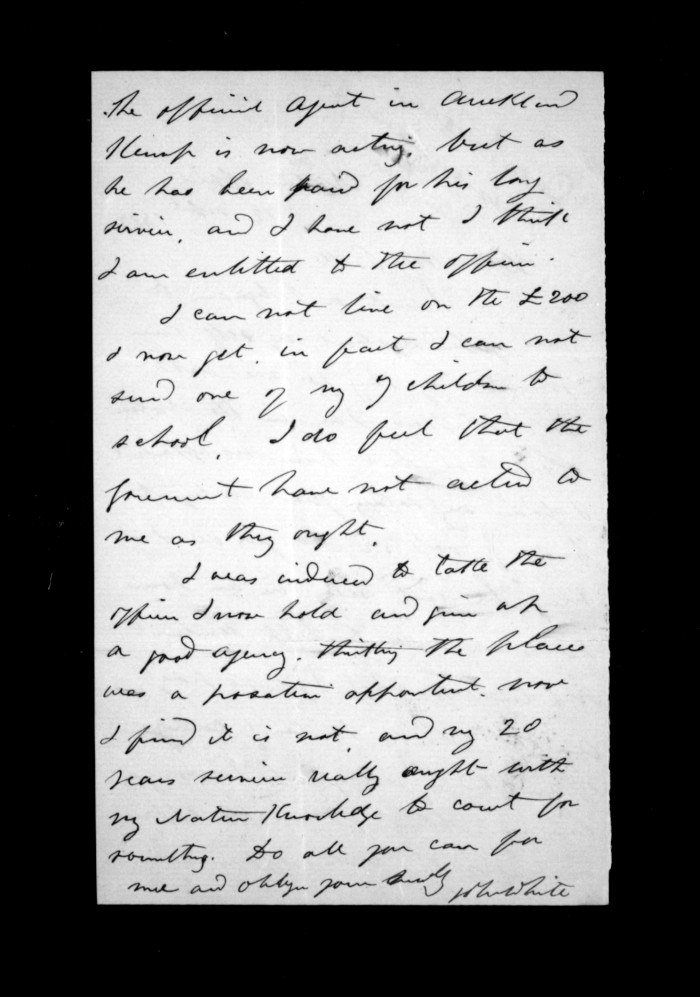 the official Agent in Auckland
Kemp is now acting. but as
he has been paid for his long
service, and I have not I think
I am entitled to the office.
I can not live on the £200
I now get. in fact I can not
send one of my 7 children to
school. I do feel that the
Government have not acted to
me as they ought.
I was induced to take the
office I now hold and give up
a good agency. thinking the place
was a positive appointment. now
I find it is not, and my 20
years service really ought with
my Native Knowledge to count for
something. Do all you can for
me and oblige yours John White